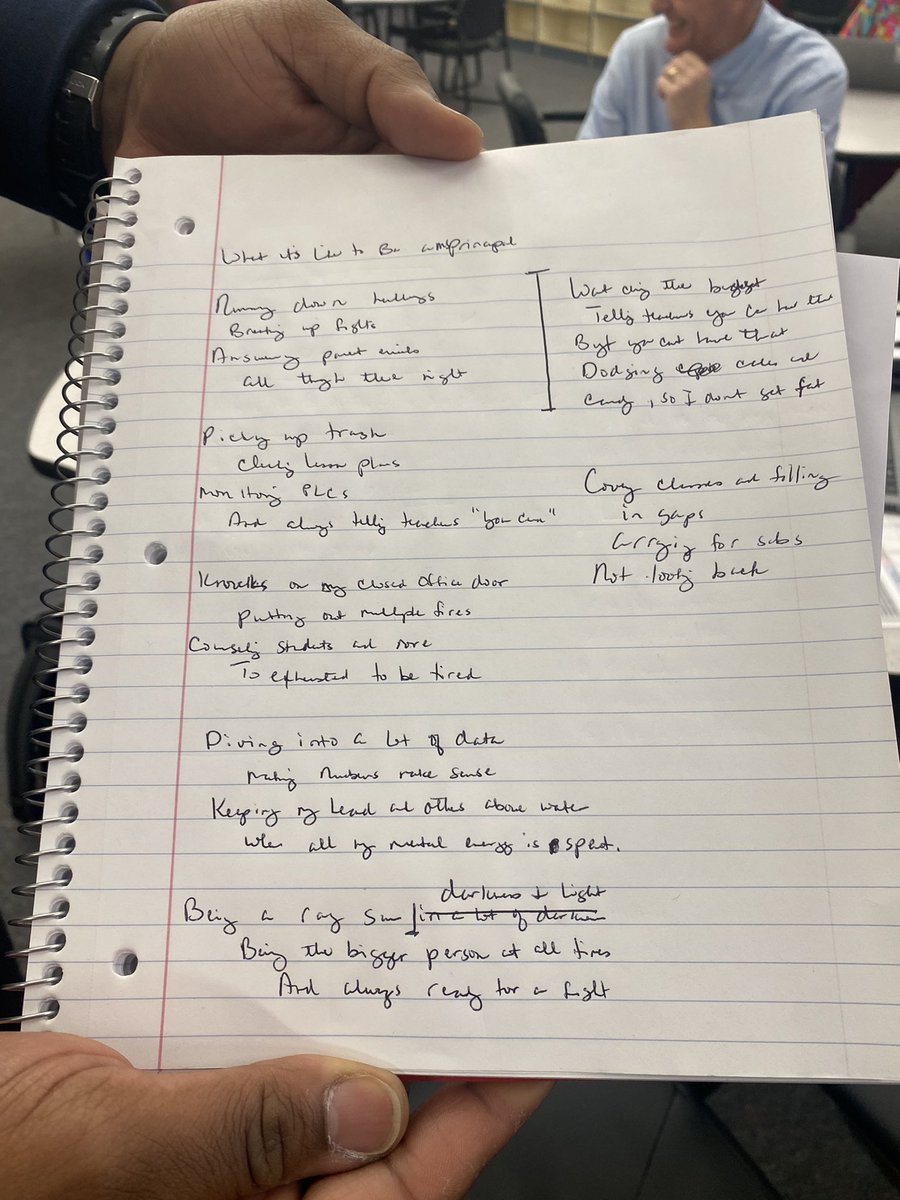 What it's like to be a principal
Running down hallways
Breaking up fights
Answering parent emails
all through the night
Picking up trash
Checking lesson plans
Monitoring PLCs
And always telling teachers "you can"
Knocks on my closed office door
Putting out multiple fires
Counseling students and more
To exhausted to be tired
Diving into a lot of data
Making numbers make sense
Keeping my head and others above water
When all my mental energy is spent.
darkness & Light
Being a ray sun in a lot of darkness
Being the bigger person at all times
And always ready for a fight
Watching the budget
Telling teachers you can have this
But you can't have that
Dodging cakes and
candy, so I don't get fat
Covering classes and filling
in gaps
for subs
Not looking back